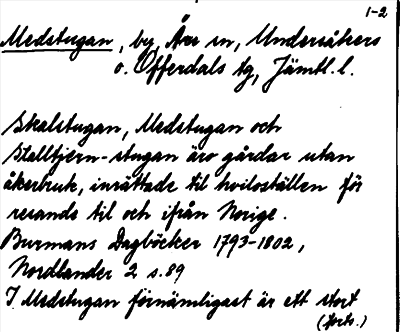 1-2
Medstugan, by, Åre sn, Undersåkers
o. Offerdals tg, Jämtl. l.
Skalstugan, Medstugan och
Stalltjern-stugan äro gårdar utan
åkerbruk, inrättade til hviloställen för
resande til och ifrån Norige.
Burmans Dagböcker 1793-1802,
Nordlander 2 s. 89
I Medstugan förnämligast är ett stort
(forts.)